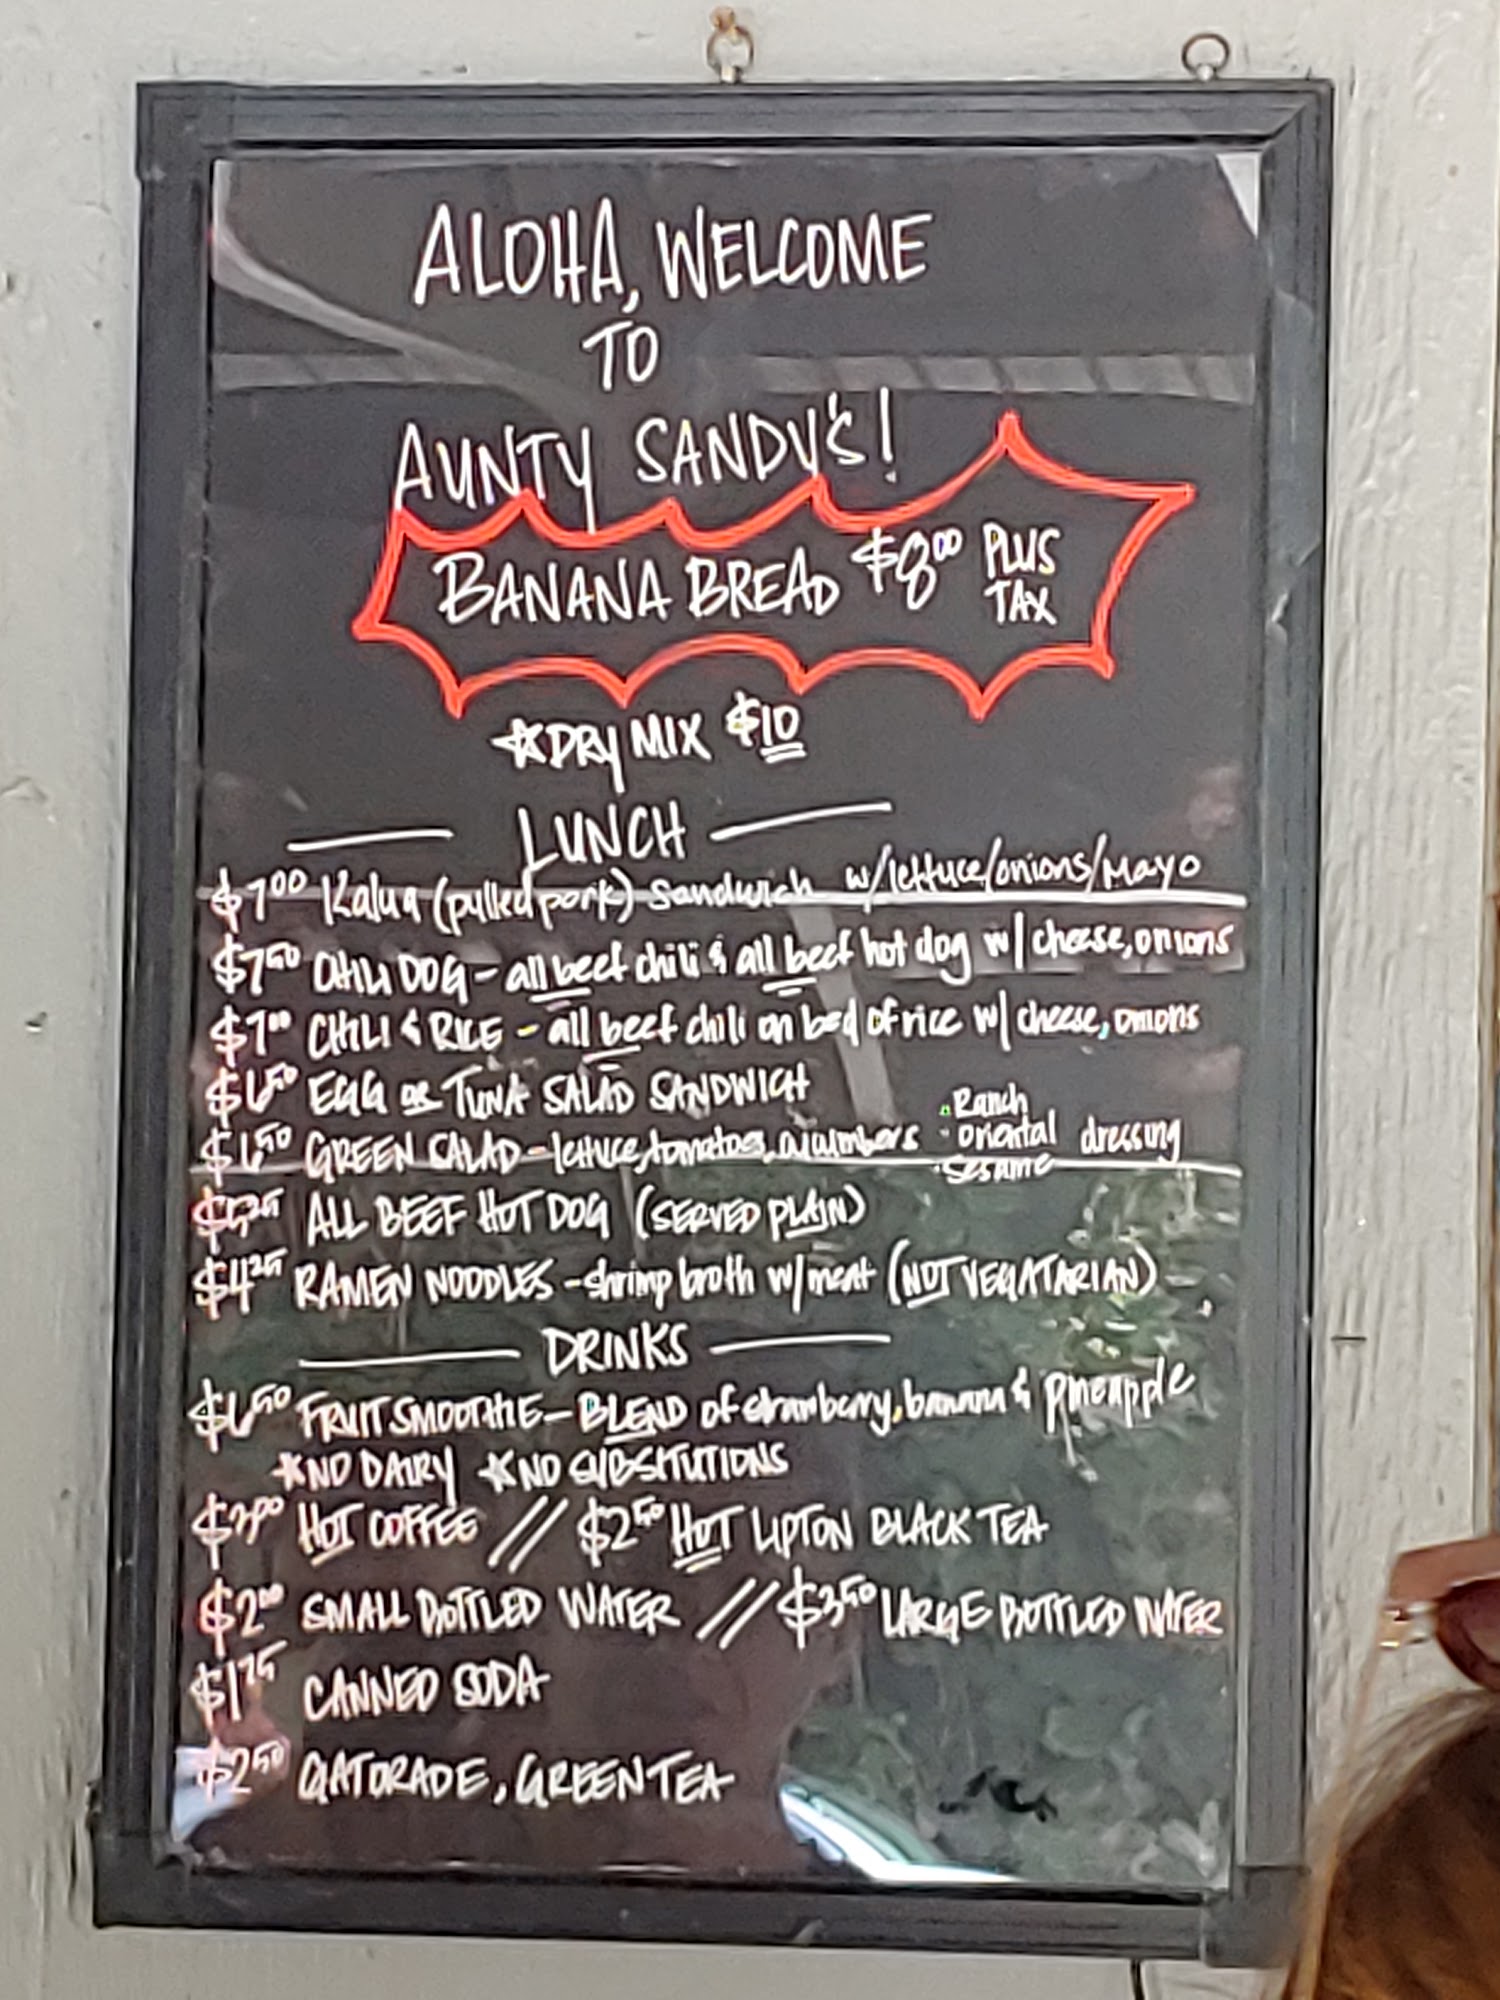 ALOHA, WELCOME
TO
AUNTY SANDY'S!
BANANA BREAD $8.00 PLUS TAX
*DRY MIX $10
LUNCH
$7.00 Kalua (pulled pork) Sandwich w/lettuce/onions/Mayo
$7.50 CHILI DOG - all beef chili & all beef hot dog w/ cheese, onions
$7.00 CHILI & RICE - all beef chili on bed of rice w/ cheese, onions
$6.50 EGG OR TUNA SALAD SANDWICH
$6.50 GREEN SALAD - lettuce, tomatoes, cucumbers • Ranch • oriental • sesame dressing
ALL BEEF HOT DOG (SERVED PLAIN)
$4.25 RAMEN NOODLES - shrimp broth w/meat (NOT VEGATARIAN)
DRINKS
$6.50 FRUIT SMOOTHIE - BLEND of strawberry, banana & pineapple
*NO DAIRY *NO SUBSITUTIONS
HOT COFFEE // $2.50 HOT LIPTON BLACK TEA
$2.00 SMALL BOTTLED WATER // $3.50 LARGE BOTTLED WATER
$1.75 CANNED SODA
$2.50 GATORADE, GREEN TEA